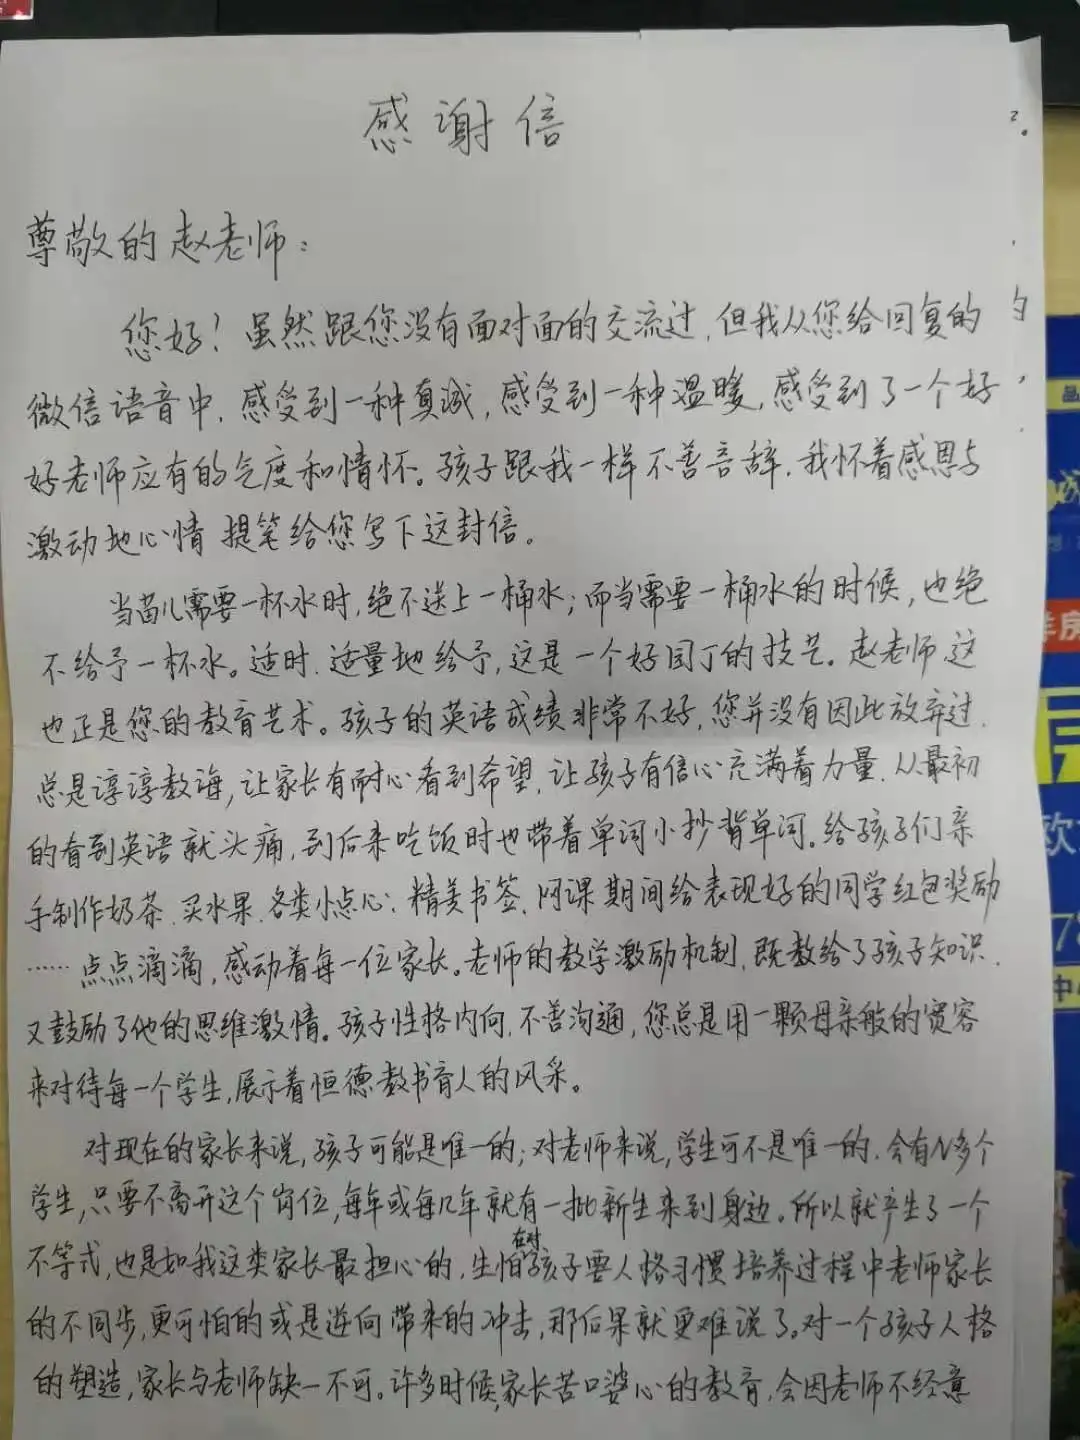 感谢信
尊敬的赵老师：
您好！虽然跟您没有面对面的交流过，但我从您给回复的
微信语音中，感受到一种真诚，感受到一种温暖，感受到了一个好
好老师应有的气度和情怀。孩子跟我一样不善言辞，我怀着感恩与
激动地心情提笔给您写下这封信。
当苗儿需要一杯水时，绝不送上一桶水；而当需要一桶水的时候，也绝
不给予一杯水。适时.适量地给予，这是一个好园丁的技艺。赵老师，这
也正是您的教育艺术。孩子的英语成绩非常不好，您并没有因此放弃过，
总是谆谆教诲，让家长有耐心看到希望，让孩子有信心充满着力量，从最初
的看到英语就头痛，到后来吃饭时也带着单词小抄背单词。给孩子们亲
手制作奶茶、买水果、各类小点心、精美书签、网课期间给表现好的同学红包奖励
……点点滴滴，感动着每一位家长。老师的教学激励机制，既教给了孩子知识，
又鼓励了他的思维激情。孩子性格内向，不善沟通，您总是用一颗母亲般的宽容
来对待每一个学生，展示着恒德教书育人的风采。
对现在的家长来说，孩子可能是唯一的；对老师来说，学生可不是唯一的，会有N多个
学生，只要不离开这个岗位，每年或每几年就有一批新生来到身边。所以就产生了一个
不等式，也是如我这类家长最担心的，生怕在对孩子要人格习惯培养过程中老师家长
的不同步，更可怕的或是逆向带来的冲击，那后果就更难说了。对一个孩子人格
的塑造，家长与老师缺一不可。许多时候，家长苦口婆心的教育，会因老师不经意